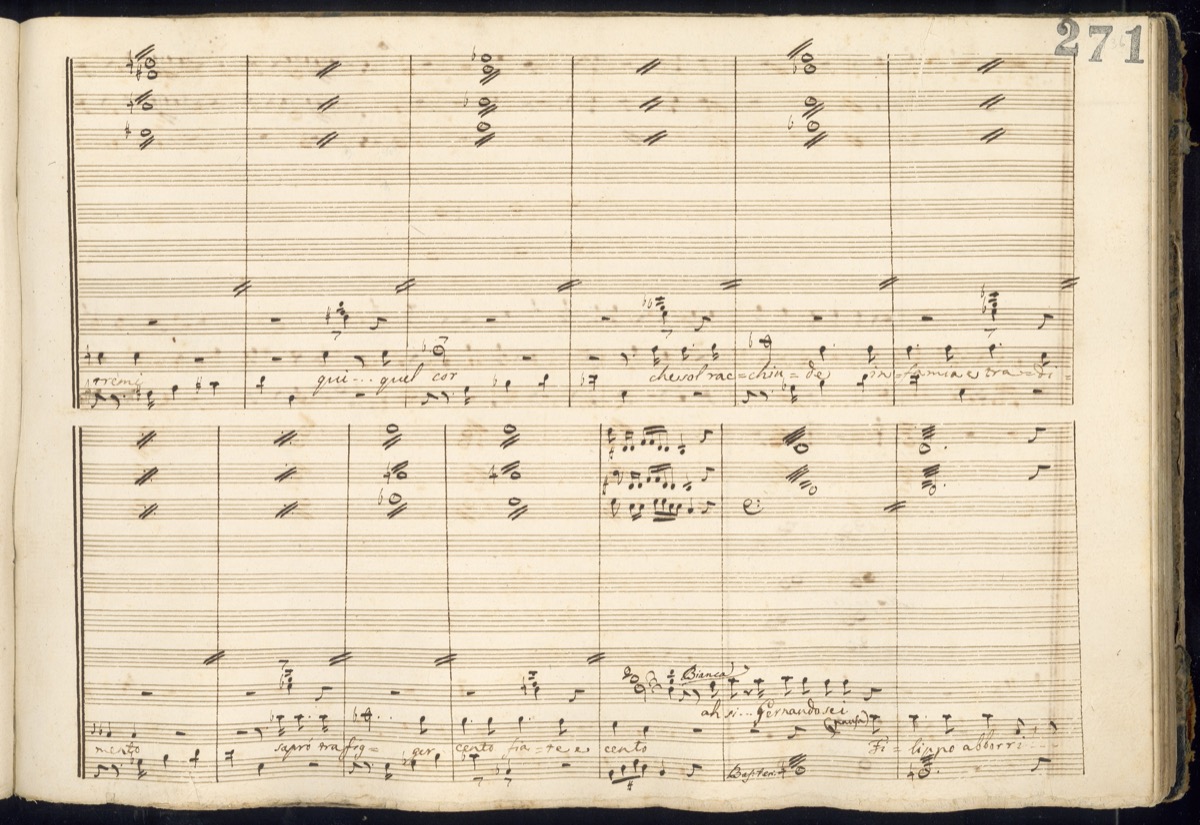 271
tremi qui... quel cor che sol rac=chiu=de in=famia e tra=di=
Bianca
ah si... Gernando sei
(pausa)
mento saprò trafig=ger cento fia=te e cento Fi=lippo abborri
Bassi ten: